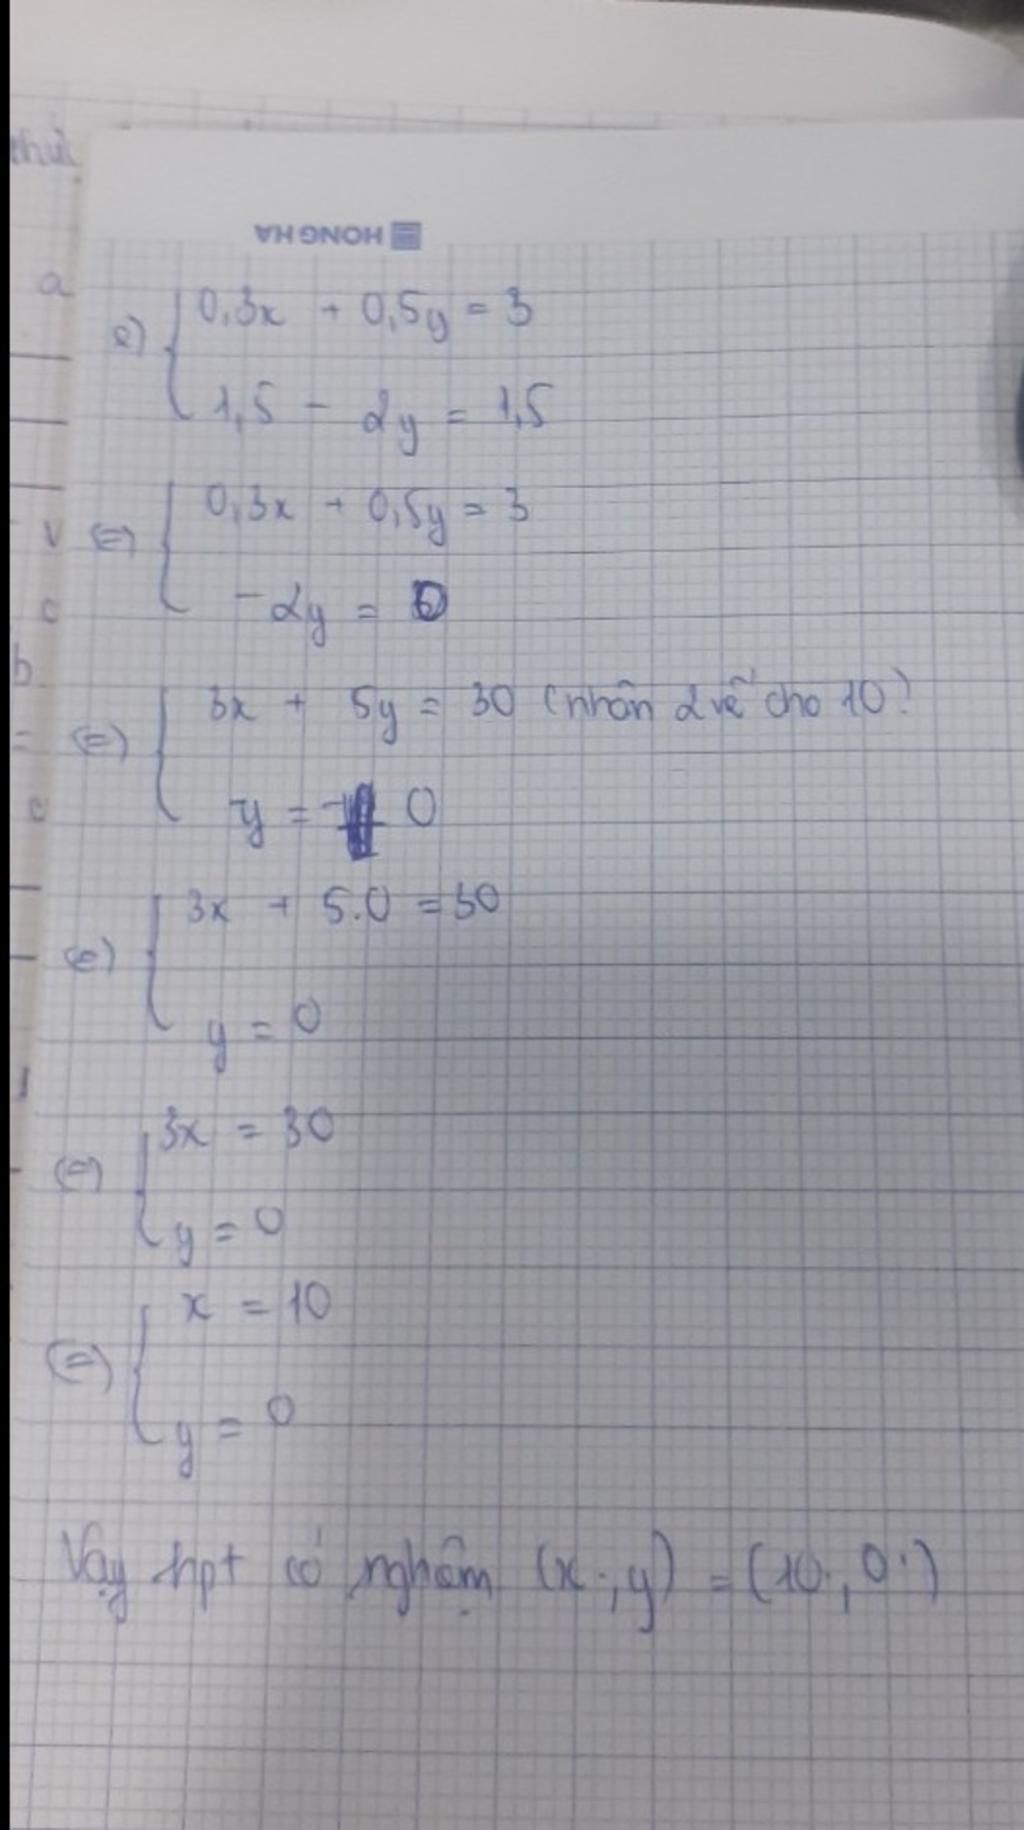 HONG HA
e) { 0,3x + 0,5y = 3
1,5 - 2y = 1,5
(=) { 0,3x + 0,5y = 3
-2y = 0
(=) { 3x + 5y = 30 (nhân 2 vế cho 10)
y = 0
(=) { 3x + 5.0 = 30
y = 0
(=) { 3x = 30
y = 0
(=) { x = 10
y = 0
Vậy hpt có nghệm (x ; y) = (10 ; 0)